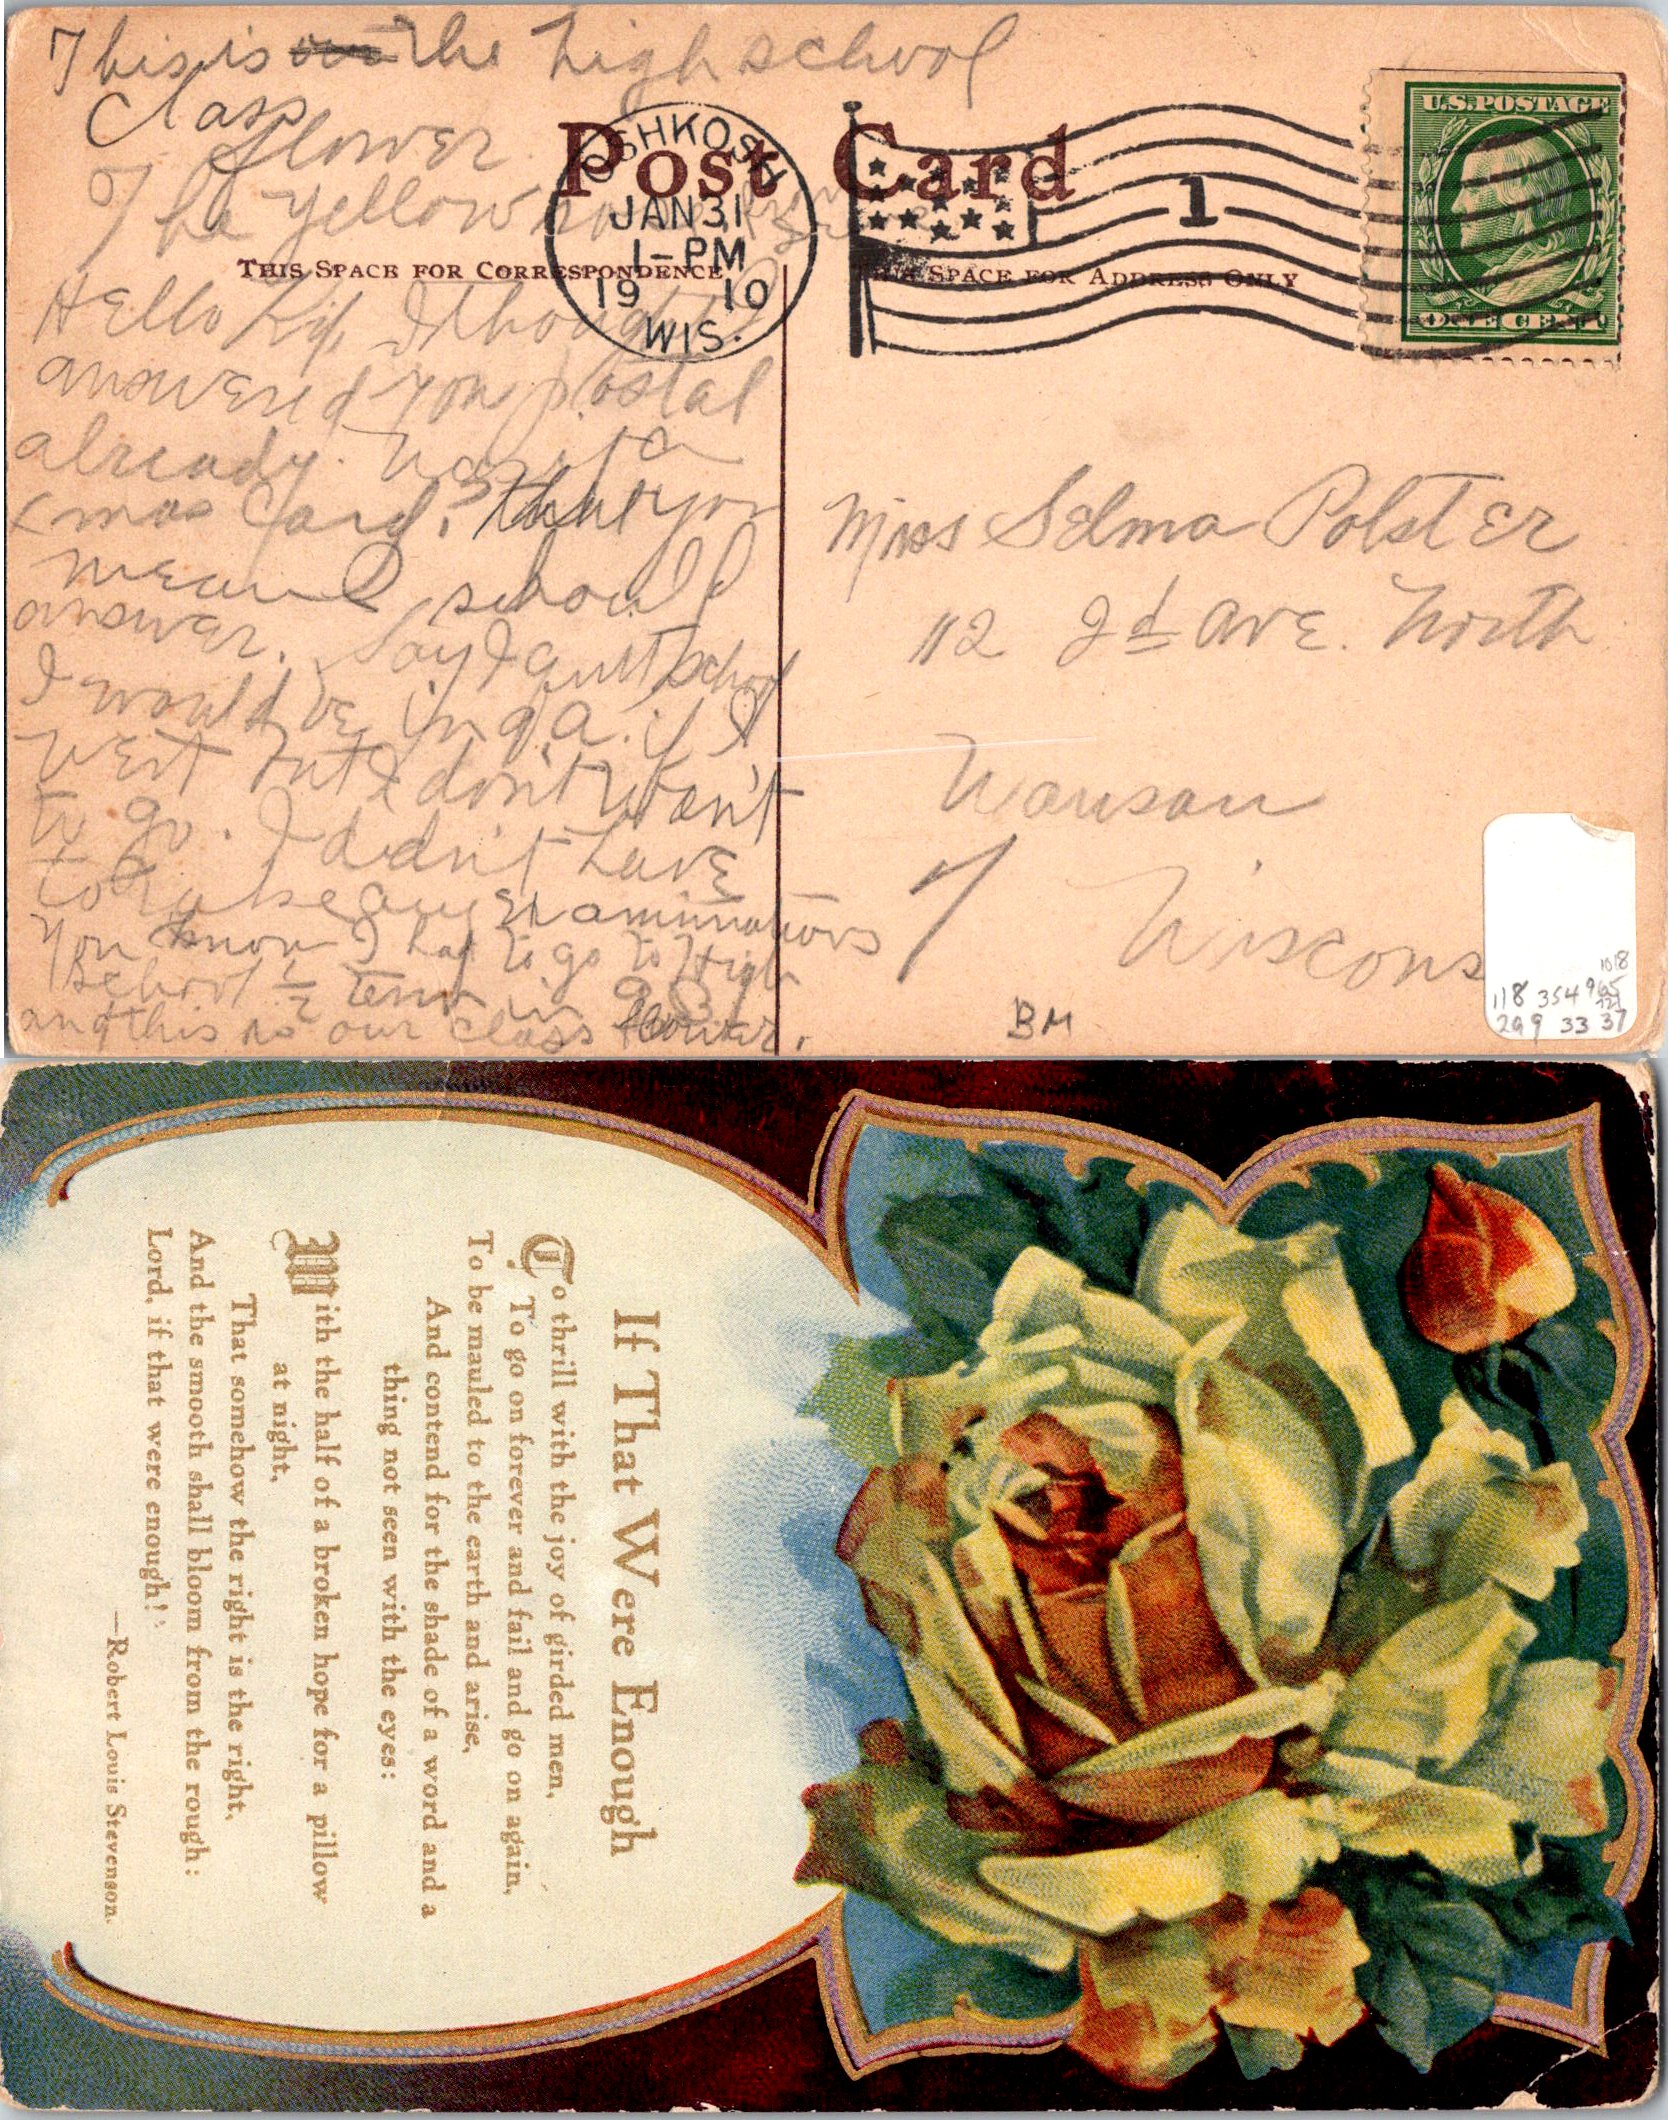 This is our the high school
Class
flower
The yellow rose. from
Post Card
OSHKOSH
JAN 31
1-PM
19 10
WIS.
1
U.S. POSTAGE
ONE CENT
THIS SPACE FOR CORRESPONDENCE
THIS SPACE FOR ADDRESS ONLY
Hello Kid, I thought I
answered your postal
already. Was it a
Xmas Card, that you
mean I should
answer. Say I quit school
I would be in 9A. if I
went but I don't want
to go. I didn't have
to take any examinations
You know I had to go to High
School ½ term in
and this is our class flower.
Miss Selma Polster
112 2d Ave. North
Wausau
Wiscons
BM
1018
118 354 965
121
299 33 37
If That Were Enough
To thrill with the joy of girded men,
To go on forever and fail and go on again,
To be mauled to the earth and arise,
And contend for the shade of a word and a
thing not seen with the eyes:
With the half of a broken hope for a pillow
at night,
That somehow the right is the right,
And the smooth shall bloom from the rough:
Lord, if that were enough!
—Robert Louis Stevenson.